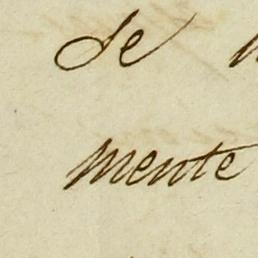 de
mente